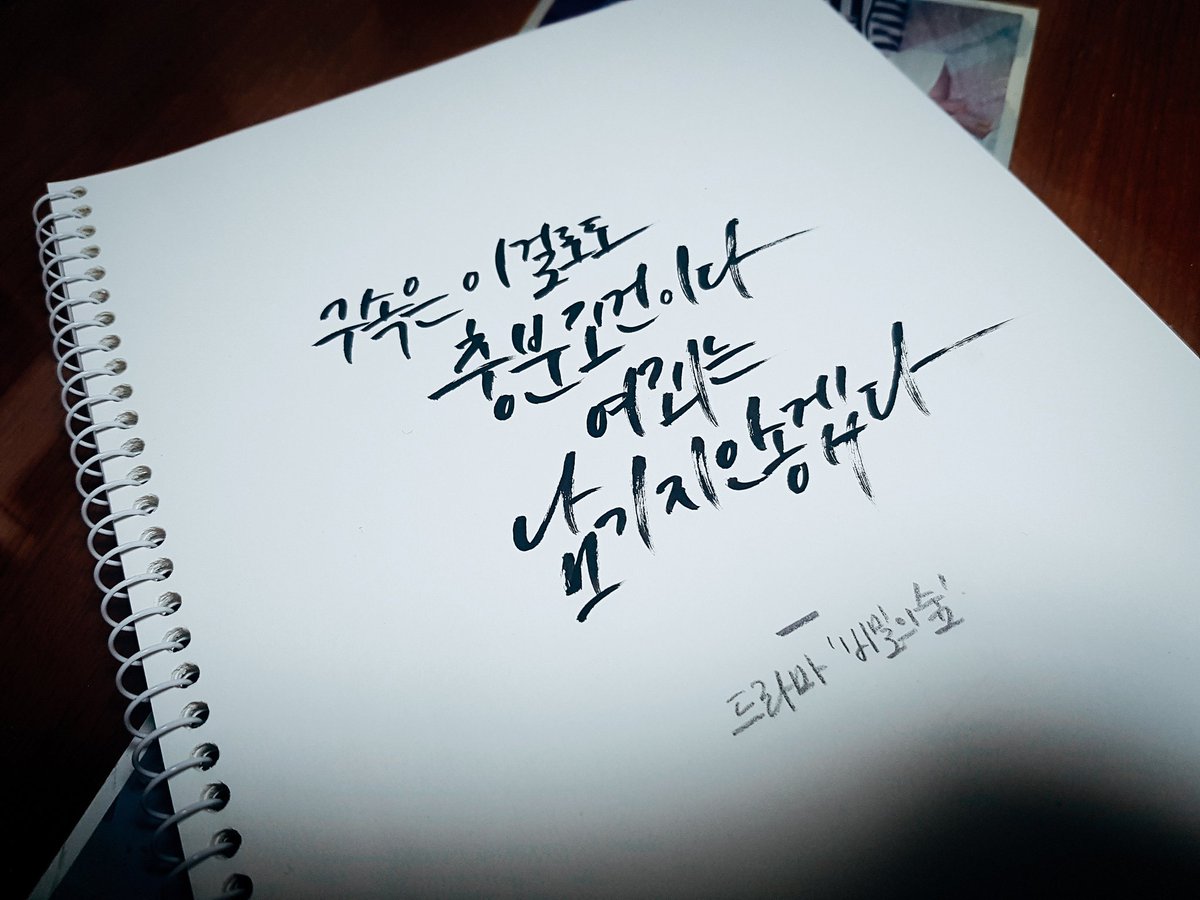 구속은 이걸로도
충분조건이다
여죄는
남기지 않겠다
—
드라마 '비밀의 숲'.